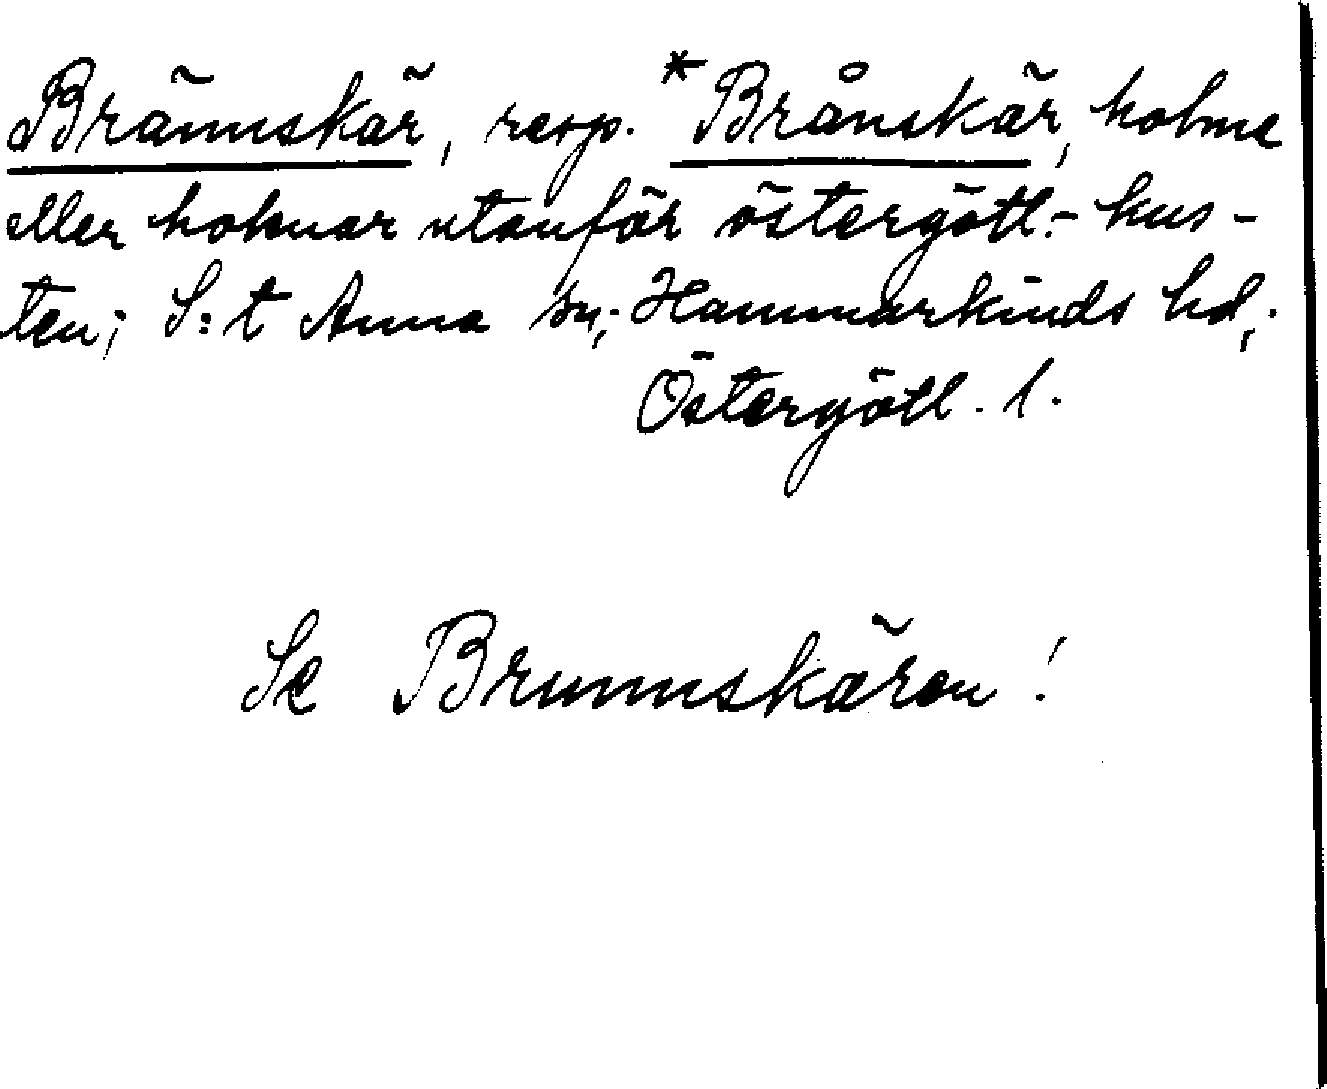 Brännskär, resp. *Brånskär, holme
eller holmar utanför östergötl.- kus-
ten; S:t Anna sn; Hammarkinds hd,.
Östergötl. l.
Se Brunnskären!